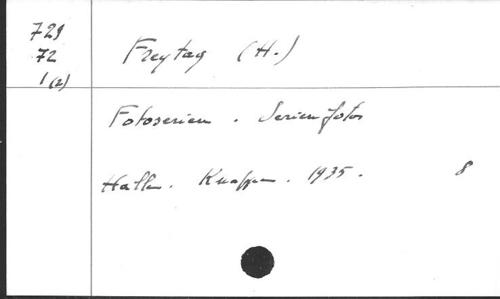 729
72
1(2)
Freytag (H.)
Fotoserien. Serienfotos
Halle. Knapp. 1935. 8